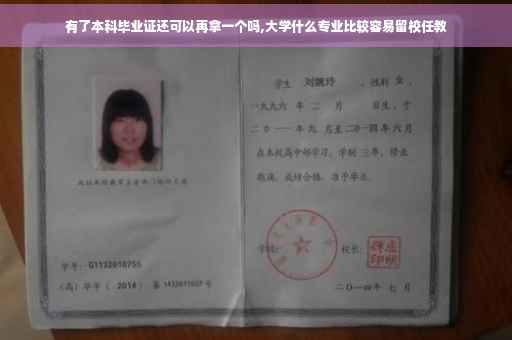 有了本科毕业证还可以再拿一个吗,大学什么专业比较容易留校任教
学生 刘婉玲 ,性别 女 ,
一九九六 年 二 月 日生,于
二〇一一 年 九 月至 二〇一四 年 六 月
在本校高中部学习,学制 三 年,修业
期满,成绩合格,准予毕业。
学校: 校长:
学号: G1132010755
(高)毕字( 2014 )第 1432011027 号
二〇一四年 七 月